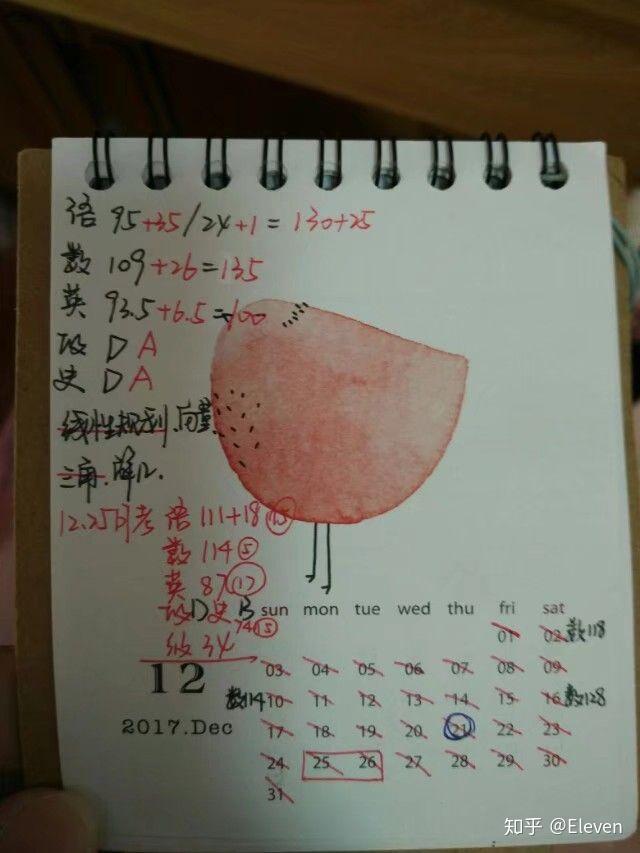 语 95+35/24+1=130+25
数 109+26=135
英 93.5+6.5=100
政 D A
史 D A
线性规划.向量.
三角.解几.
12.25月考 语 111+18 15
数 114 5
英 87 17
政D史B
74 5
级34
sun mon tue wed thu fri sat
01 02 数118
12
03 04 05 06 07 08 09
数114 10 11 12 13 14 15 16 数128
2017.Dec
17 18 19 20 21 22 23
24 25 26 27 28 29 30
31
知乎 @Eleven